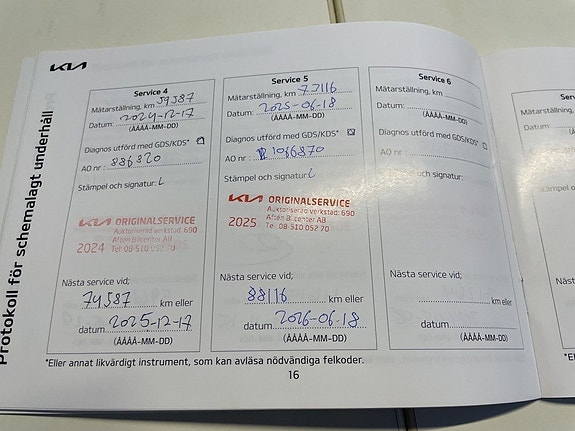 KIA
Protokoll för schemalagt underhåll
Service 4
Mätarställning, km 59587
Datum: 2024-12-17
(ÅÅÅÅ-MM-DD)
Diagnos utförd med GDS/KDS*
AO nr: 886820
Stämpel och signatur: L
KIA ORIGINALSERVICE
Auktoriserad verkstad: 690
Aftén Bilcenter AB
2024 Tel: 08-510 052 70
Nästa service vid;
74587 km eller
datum 2025-12-17
(ÅÅÅÅ-MM-DD)
Service 5
Mätarställning, km 73116
Datum: 2025-06-18
(ÅÅÅÅ-MM-DD)
Diagnos utförd med GDS/KDS*
AO nr: 1066870
Stämpel och signatur: L
KIA ORIGINALSERVICE
Auktoriserad verkstad: 690
Aftén Bilcenter AB
2025 Tel: 08-510 052 70
Nästa service vid;
88116 km eller
datum 2026-06-18
(ÅÅÅÅ-MM-DD)
Service 6
Mätarställning, km
Datum:
(ÅÅÅÅ-MM-DD)
Diagnos utförd med GDS/KDS*
AO nr:
Stämpel och signatur:
Nästa service vid;
km eller
datum
(ÅÅÅÅ-MM-DD)
*Eller annat likvärdigt instrument, som kan avläsa nödvändiga felkoder.
16